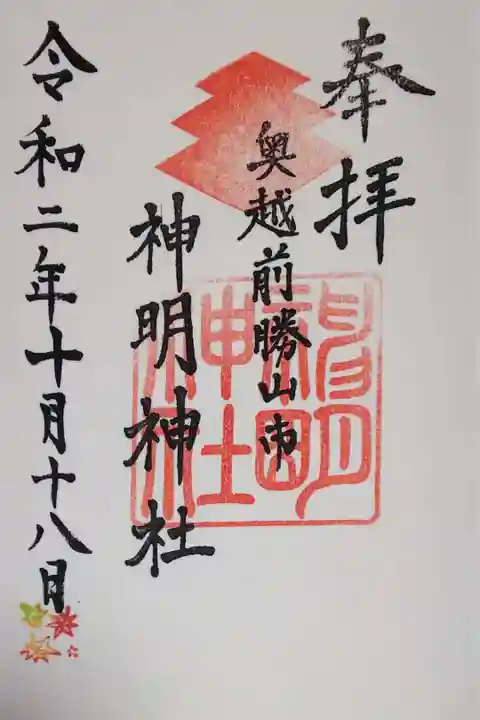 奉拝
奥越前勝山市
神明神社
令和二年十月十八日
神明神社